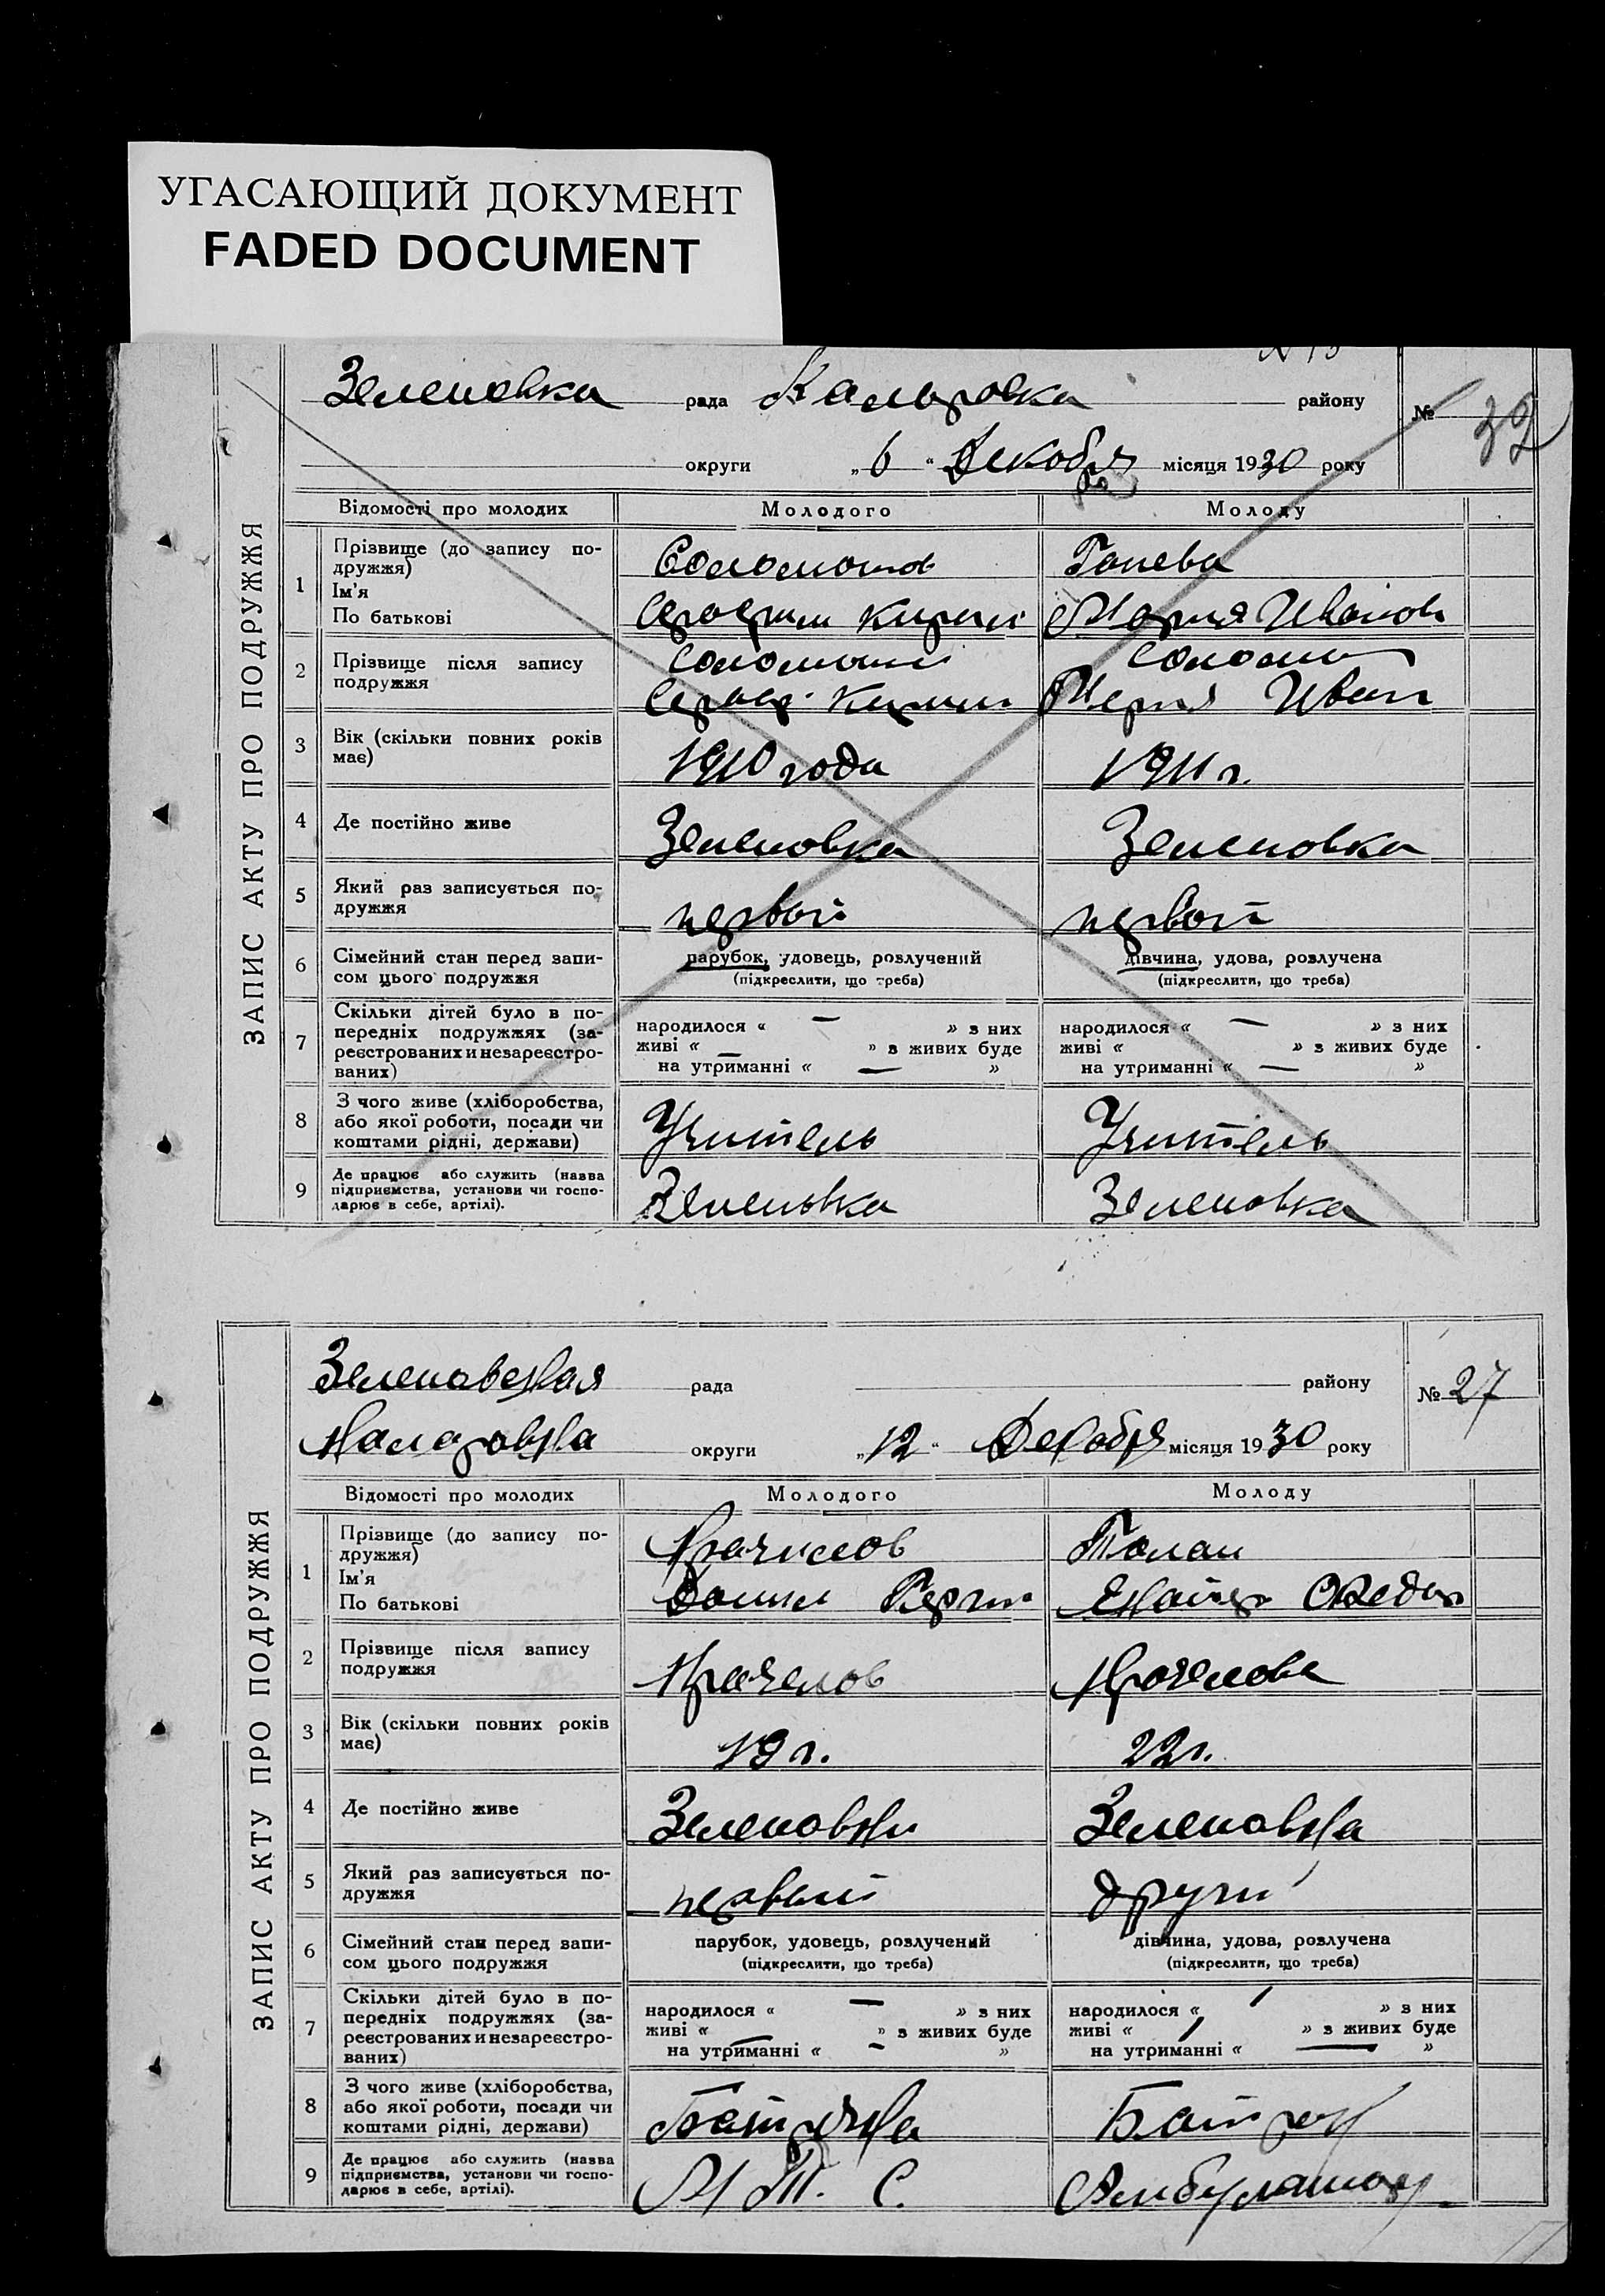 УГАСАЮЩИЙ ДОКУМЕНТ
FADED DOCUMENT
Зеленовка рада Кальчовка району № 32
округи „6“ Декобря місяця 1930 року
ЗАПИС АКТУ ПРО ПОДРУЖЖЯ
Відомості про молодих Молодого Молоду
1 Прізвище (до запису по-
дружжя) Соломонов Ганева
Ім'я
По батькові Мария Иванов
2 Прізвище після запису
подружжя
Иван
3 Вік (скільки повних років
має) 1910 года 1911 г.
4 Де постійно живе Зеленовка Зеленовка
5 Який раз записується по-
дружжя первой первой
6 Сімейний стан перед запи-
сом цього подружжя парубок, удовець, розлучений дівчина, удова, розлучена
(підкреслити, що треба) (підкреслити, що треба)
7 Скільки дітей було в по-
передніх подружжях (за-
реєстрованих и незареєстро-
ваних) народилося « — » з них народилося « — » з них
живі « — » з живих буде живі « » з живих буде
на утриманні « — » на утриманні « — »
8 З чого живе (хліборобства,
або якої роботи, посади чи
коштами рідні, держави) Учитель Учитель
9 Де працює або служить (назва
підприємства, установи чи госпо-
дарює в себе, артілі). Зеленовка Зеленовка
Зеленовская рада району № 27
округи „12“ Декабря місяця 1930 року
ЗАПИС АКТУ ПРО ПОДРУЖЖЯ
Відомості про молодих Молодого Молоду
1 Прізвище (до запису по-
дружжя)
Ім'я
По батькові Федор
2 Прізвище після запису
подружжя
3 Вік (скільки повних років
має) 19 г. 22 г.
4 Де постійно живе Зеленовки Зеленовка
5 Який раз записується по-
дружжя первый други
6 Сімейний стан перед запи-
сом цього подружжя парубок, удовець, розлучений дівчина, удова, розлучена
(підкреслити, що треба) (підкреслити, що треба)
7 Скільки дітей було в по-
передніх подружжях (за-
реєстрованих и незареєстро-
ваних) народилося « — » з них народилося « » з них
живі « — » з живих буде живі « » з живих буде
на утриманні « - » на утриманні « — »
8 З чого живе (хліборобства,
або якої роботи, посади чи
коштами рідні, держави) Батрак
9 Де працює або служить (назва
підприємства, установи чи госпо-
дарює в себе, артілі). М Т. С.